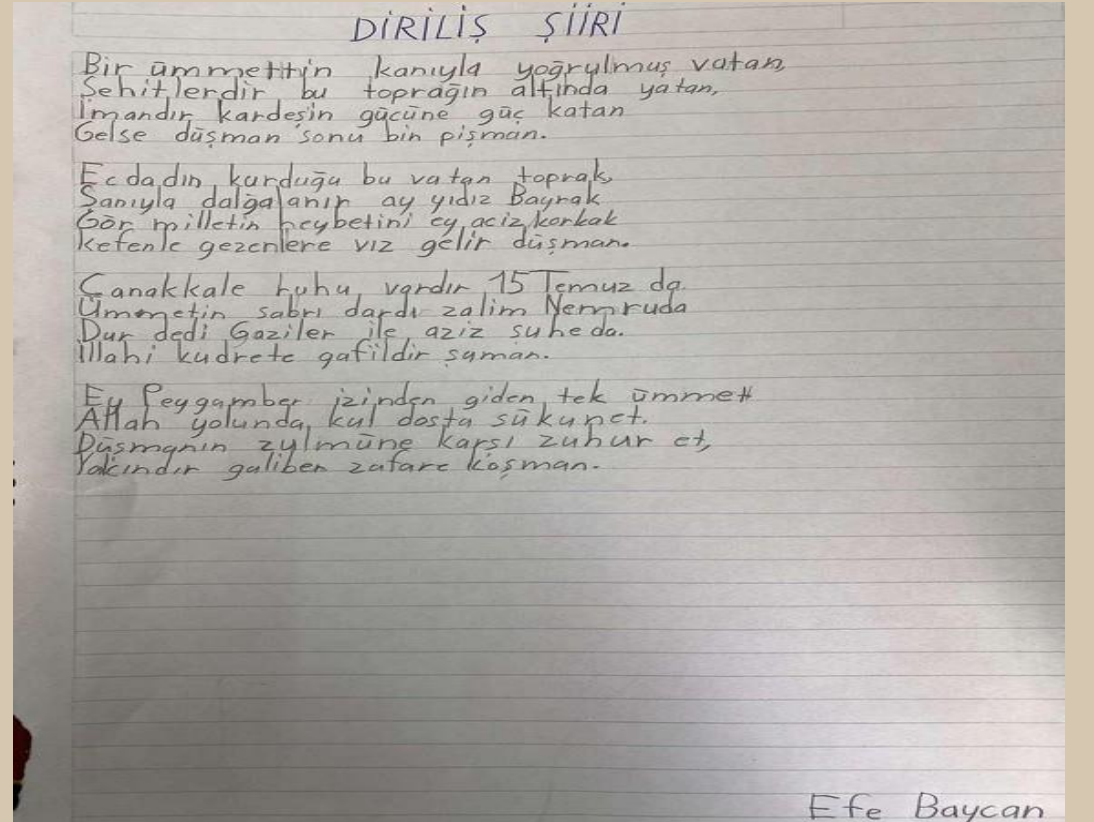 DİRİLİŞ ŞİİRİ
Bir ümmettin kanıyla yoğrulmuş vatan,
Şehitlerdir bu toprağın altında yatan,
İmandır kardeşin gücüne güç katan
Gelse düşman sonu bin pişman.
Ecdadın kurduğu bu vatan toprak,
Şanıyla dalğalanır ay yıdız Bayrak
Gör milletin heybetini ey aciz korkak
kefenle gezenlere vız gelir düşman.
Çanakkale ruhu vardır 15 Temuz da.
Ümmetin sabrı dardı zalim Nemruda
Dur dedi Gaziler ile aziz şuheda.
İllahi kudrete gafildir şaman.
Ey Peygamber izinden giden tek ümmett
Allah yolunda, kul dosta sükunet.
Düşmanın zulmüne karşı zuhur et,
Yakındır galiben zafare koşman.
Efe Baycan